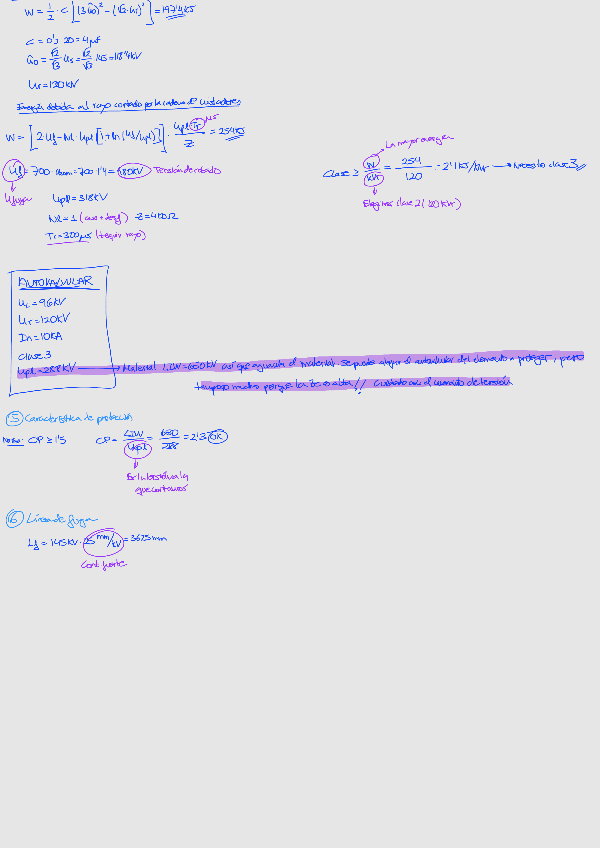 W = 1/2 · C [(3û0)² − (√2·Ur)²] = 197'4 kJ
C = 0'2 · 20 = 4 μF
û0 = √2/√3 Us = √2/√3 145 = 118'4 kV
Ur = 120 kV
Energía debida al rayo cortado por la cadena de aisladores
W = [2·Uf − Nl · Upl [1 + ln(2Uf/Upl)]] · Upl·Tr/Z = 254 kJ
μs
Uf = 700 · = 700 · 1'4 = 980 kV Tensión de cebado
Ufuga
Upl = 318 kV
Nl = 1 Z = 400 Ω
Tr = 300 μs (tequiv rayo)
La mayor energía
Clase ≥ W/Ur = 254/120 = 2'1 kJ/kVr → Necesito clase 3
Elegimos clase 2 (120 kVr)
AUTOVALVULAR
Uc = 96 kV
Ur = 120 kV
In = 10 kA
Clase 3
Upl = 288 kV → Material LIW = 650 kV así que aguanta el material. Se puede alejar el autovalvular del elemento a proteger, pero
tampoco mucho porque la // Cuidado con el aumento de tensión
5 Característica de protección
Norma: CP ≥ 1'5 CP = LIW/Upl = 650/288 = 2'3 OK
Es la
que cortamos
6 Línea de fuga
Lf = 145 kV · 25 mm/kV = 3625 mm
Cont. fuerte